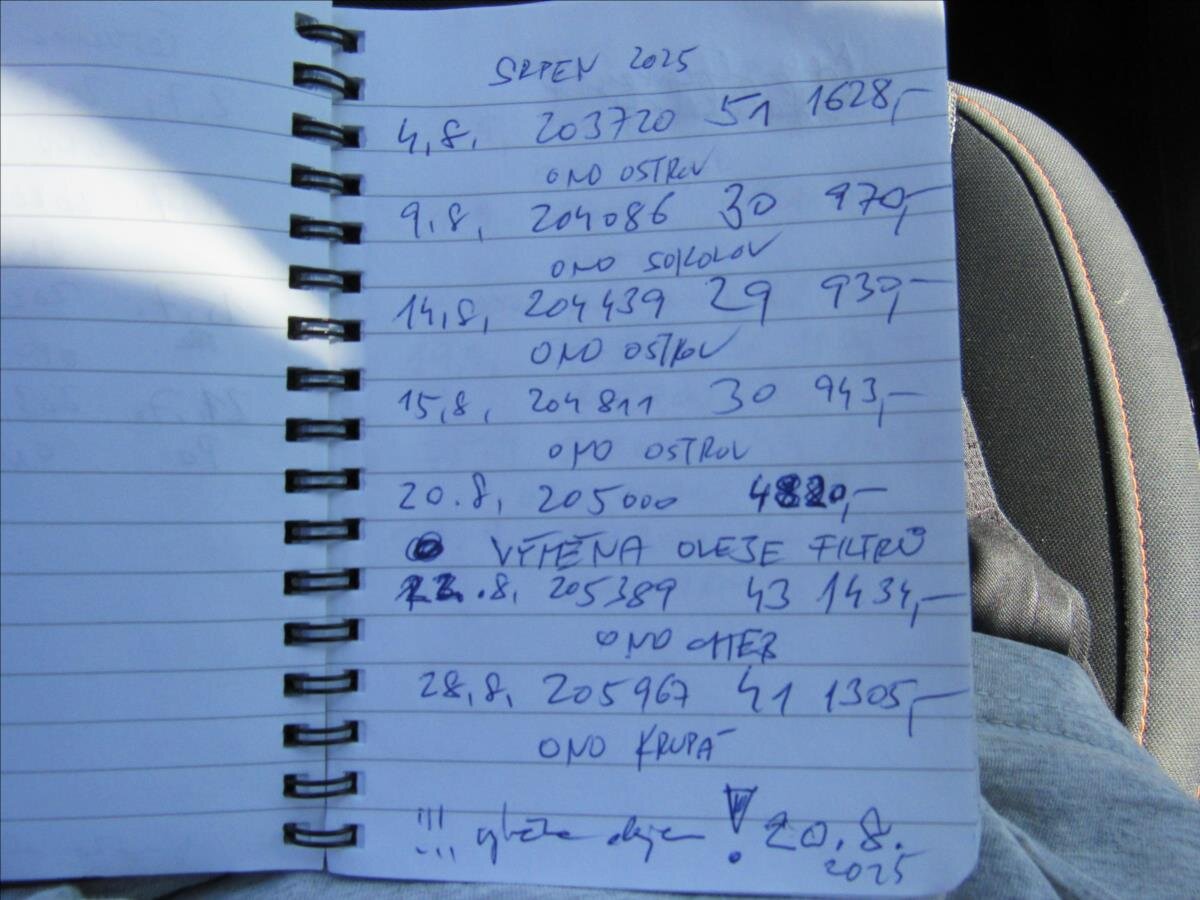 SRPEN 2025
4,8, 203720 51 1628,-
ONO OSTROV
9,8, 204086 30 970,-
ONO SOKOLOV
14,8, 204439 29 930,-
ONO OSTROV
15,8, 204811 30 943,-
ONO OSTROV
20.8, 205000 4820,-
VÝMĚNA OLEJE FILTRŮ
22.8, 205389 43 1434,-
ONO CHEB
28,8, 205967 41 1305,-
ONO KRUPÁ
!!! oleje ! 20.8.
2025